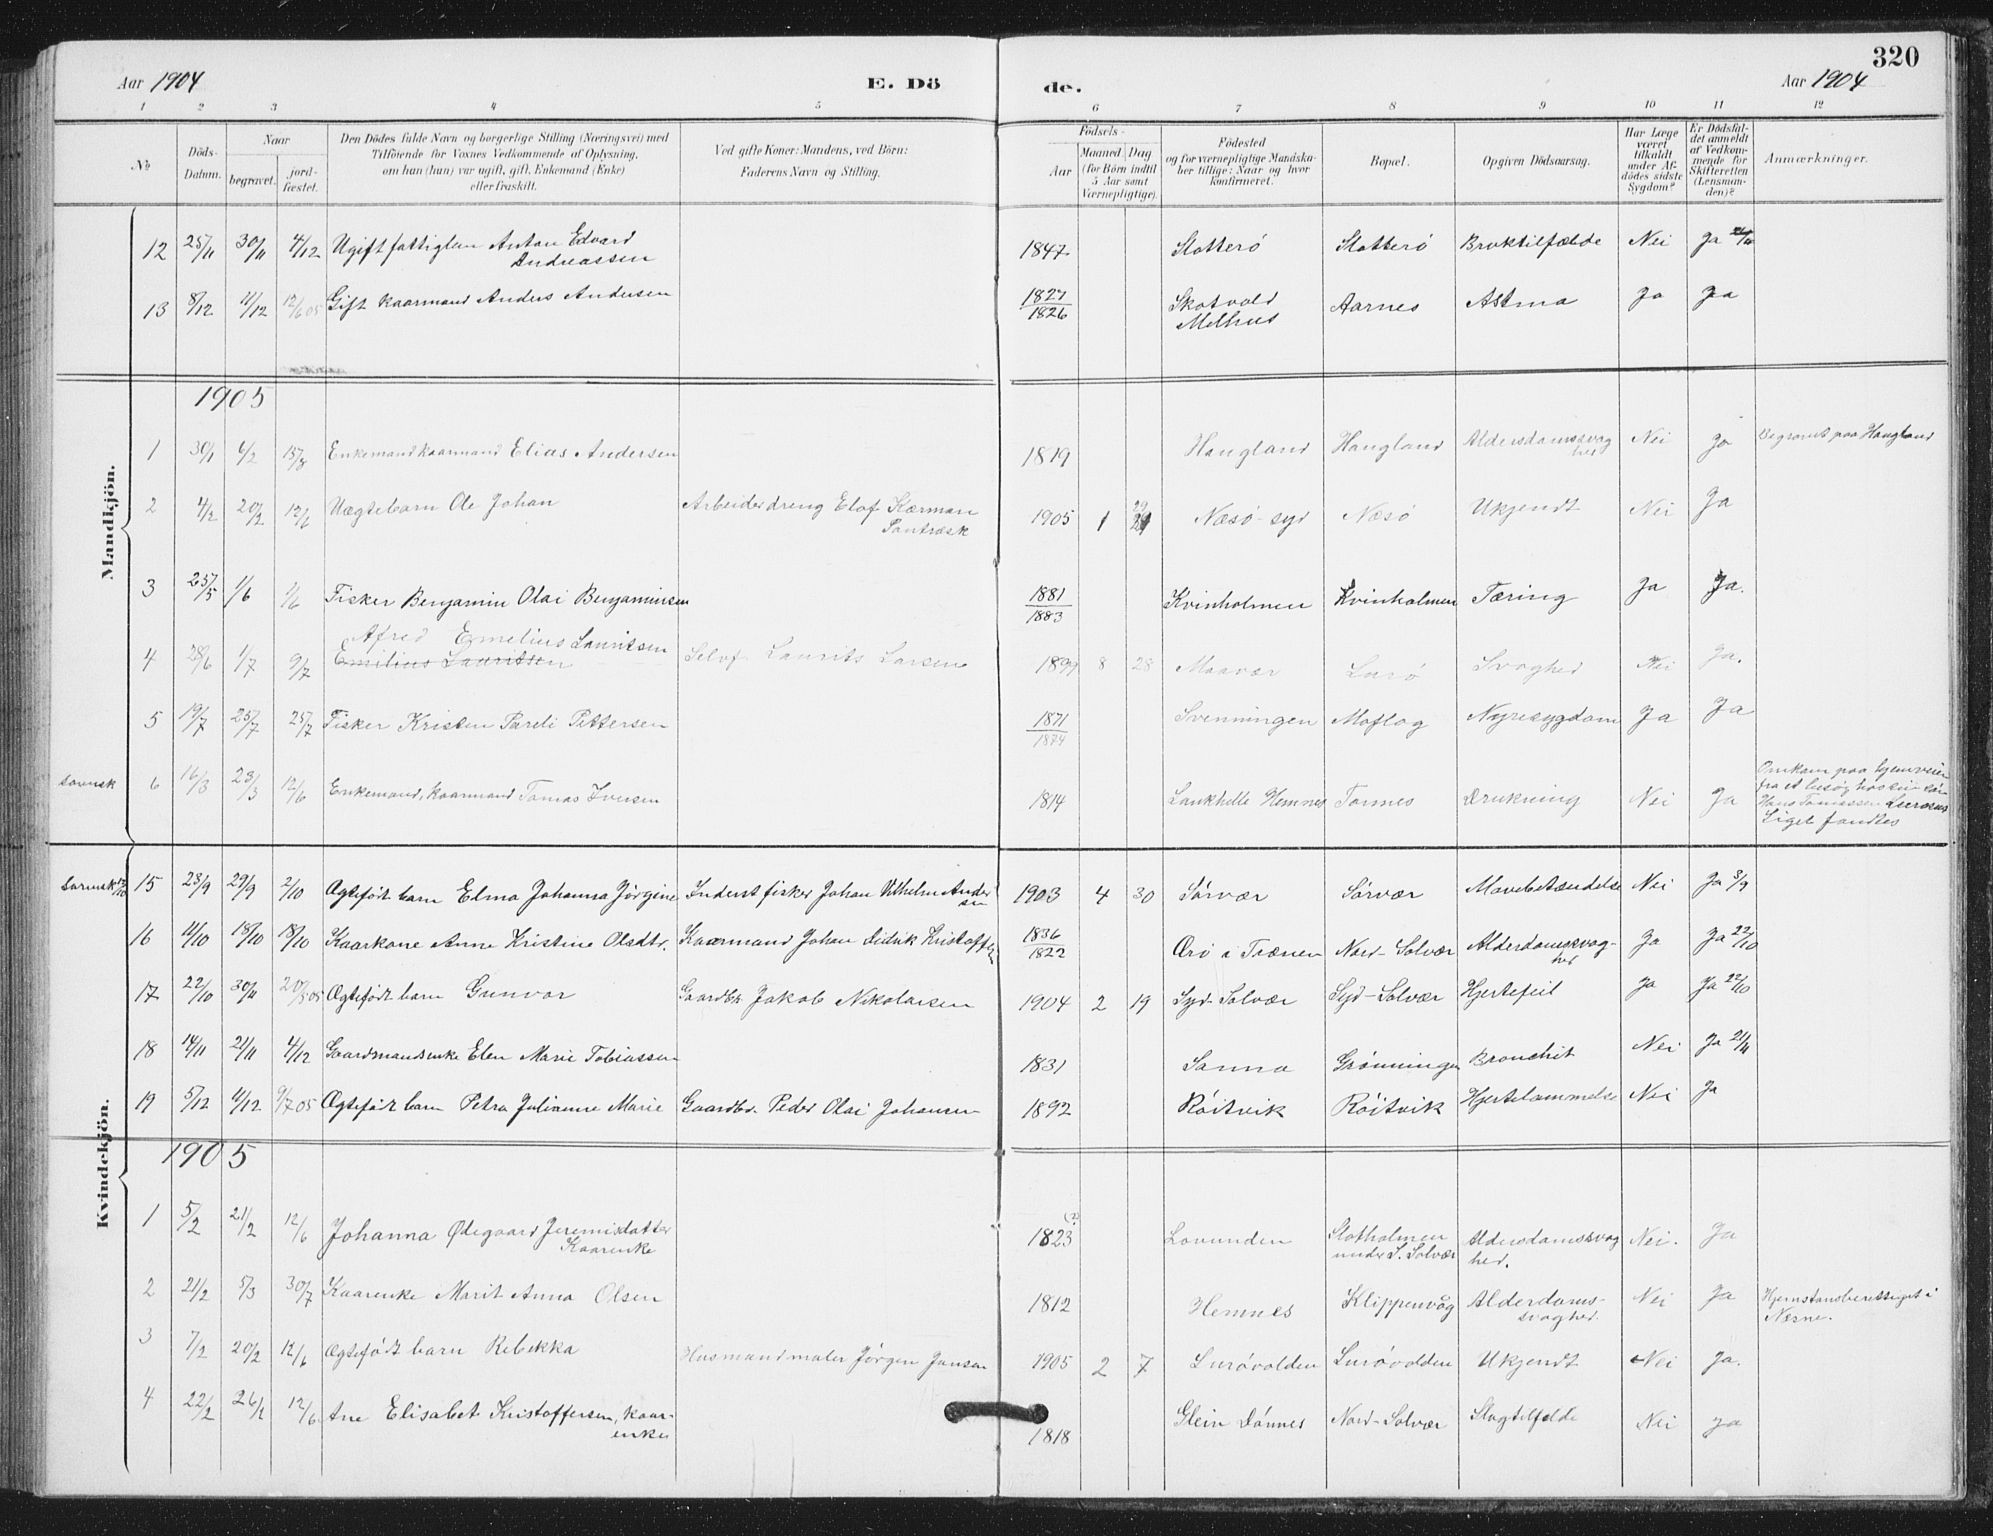 320
Aar 1904 E. Dö de. Aar 1904
1 2 3 4 5 6 7 8 9 10 11 12
No
Döds-Datum.
Naar
begravet.
jord-fæstet.
Den Dödes fulde Navn og borgerlige Stilling (Næringsvei) med
Tilföiende for Voxnes Vedkommende af Oplysning,
om han (hun) var ugift, gift, Enkemand (Enke)
eller fraskilt.
Ved gifte Koner: Mandens, ved Börn:
Faderens Navn og Stilling.
Födsels-
Aar
Maaned. Dag
(for Börn indtil
5 Aar samt
Værnepligtige).
Födested
og for værnepligtige Mandska-
ber tillige: Naar og hvor
konfirmeret.
Bopæl.
Opgiven Dödsaarsag.
Har Læge
været
tilkaldt
under Af-
dödes sidste
Sygdom?
Er Dödsfal-
det anmeldt
af Vedkom-
mende for
Skifteretten
(Lensman-
den)?
Anmærkninger.
Mandkjön.
12 25/11 30/11 4/12 Ugift fattiglem Anton Edvard 1847 Slotterö Slotterö Broktilfælde Nei Ja
Andreassen
13 8/12 11/12 12/6 05 Gift kaarmand Anders Andersen 1827 Skotvold Aarnes Astma Ja Ja
1826 Melhus
1905
1 30/1 6/2 15/8 Enkemand kaarmand Elias Andersen 1819 Haugland Haugland Alderdomssvag Nei Ja Begravet paa Haugland
hed
2 4/2 20/2 12/6 Uægtebarn Ole Johan Arbeiderdreng Elof Kærman 1905 1 29 Næsö syd Næsö Ukjendt Nei Ja
Pantræsk
3 25/5 1/6 1/6 Fisker Benjamin Olai Benjaminsen 1881 Kvinholmen Kvinholmen Tæring Ja Ja.
1883
Afred Emelius Lauritsen
4 28/6 1/7 9/7 Emilius Lauritsen Selvf. Laurits Larsen 1899 8 28 Maavær Lurö Svaghed Nei Ja.
5 19/7 25/7 25/7 Fisker Kristen Pareli Pettersen 1871 Svenningen Moflag Nyresygdom Ja Ja
1874
6 16/3 23/3 12/6 Enkemand, kaarmand Tomas Iversen 1814 Hemnes Tonnes Drukning Nei Ja Omkom paa hjemveien
fra et besög hos sin sön
Hans Tomassen
Liget fandtes
Kvindekjön.
15 23/9 29/9 2/10 Ægtefödt barn Elma Johanna Jörgine Inderst fisker Johan Vilhelm Ander 1903 4 30 Sörvær Sörvær Mavebetændelse Nei Ja 3/9
sen
16 11/10 18/10 18/10 Kaarkone Anne Kristine Olsdtr. Kaarmand Johan Didrik Kristoffer 1836 Örö i Trænen Nord-Solvær Alderdomssvag- Ja Ja 22/10
1822 hed
17 22/10 30/11 20/5 05 Ægtefödt barn Gunvor Gaardbr. Jakob Nikolaisen 1904 2 19 Syd-Solvær Syd-Solvær Hjertefeil Ja Ja 22/10
18 14/11 21/11 4/12 Gaardmandsenke Elen Marie Tobiassen 1831 Sanna Grönningen Bronchit Nei Ja 21/11
19 5/12 11/12 9/7 05 Ægtefödt barn Petra Julianne Marie Gaardbr. Peder Olai Johansen 1892 Röitvik Röitvik Hjertelammelse Nei Ja
1905
1 5/2 21/2 12/6 Johanna Ødegaard Jeremisdatter 1823 (?) Lovunden Slotholmen Alderdomssvag Nei. Ja
Kaarenke under S. Solvær hed.
2 21/2 5/3 30/7 Kaarenke Marit Anna Olsen 1812 Hemnes Klippenvåg Alderdoms- Nei Ja Hjemstavnsberettiget i
svaghed. Nesne.
3 7/2 20/2 12/6 Ægtefödt barn Rebekka Husmand maler Jörgen Jansen 1905 2 7 Lurövolden Lurövolden Ukjendt Nei Ja.
4 22/2 26/2 12/6 Ane Elisabet Kristoffersen, kaar- 1818 Glein Dönnes Nord-Solvær Slagtilfelde Nei Ja
enke